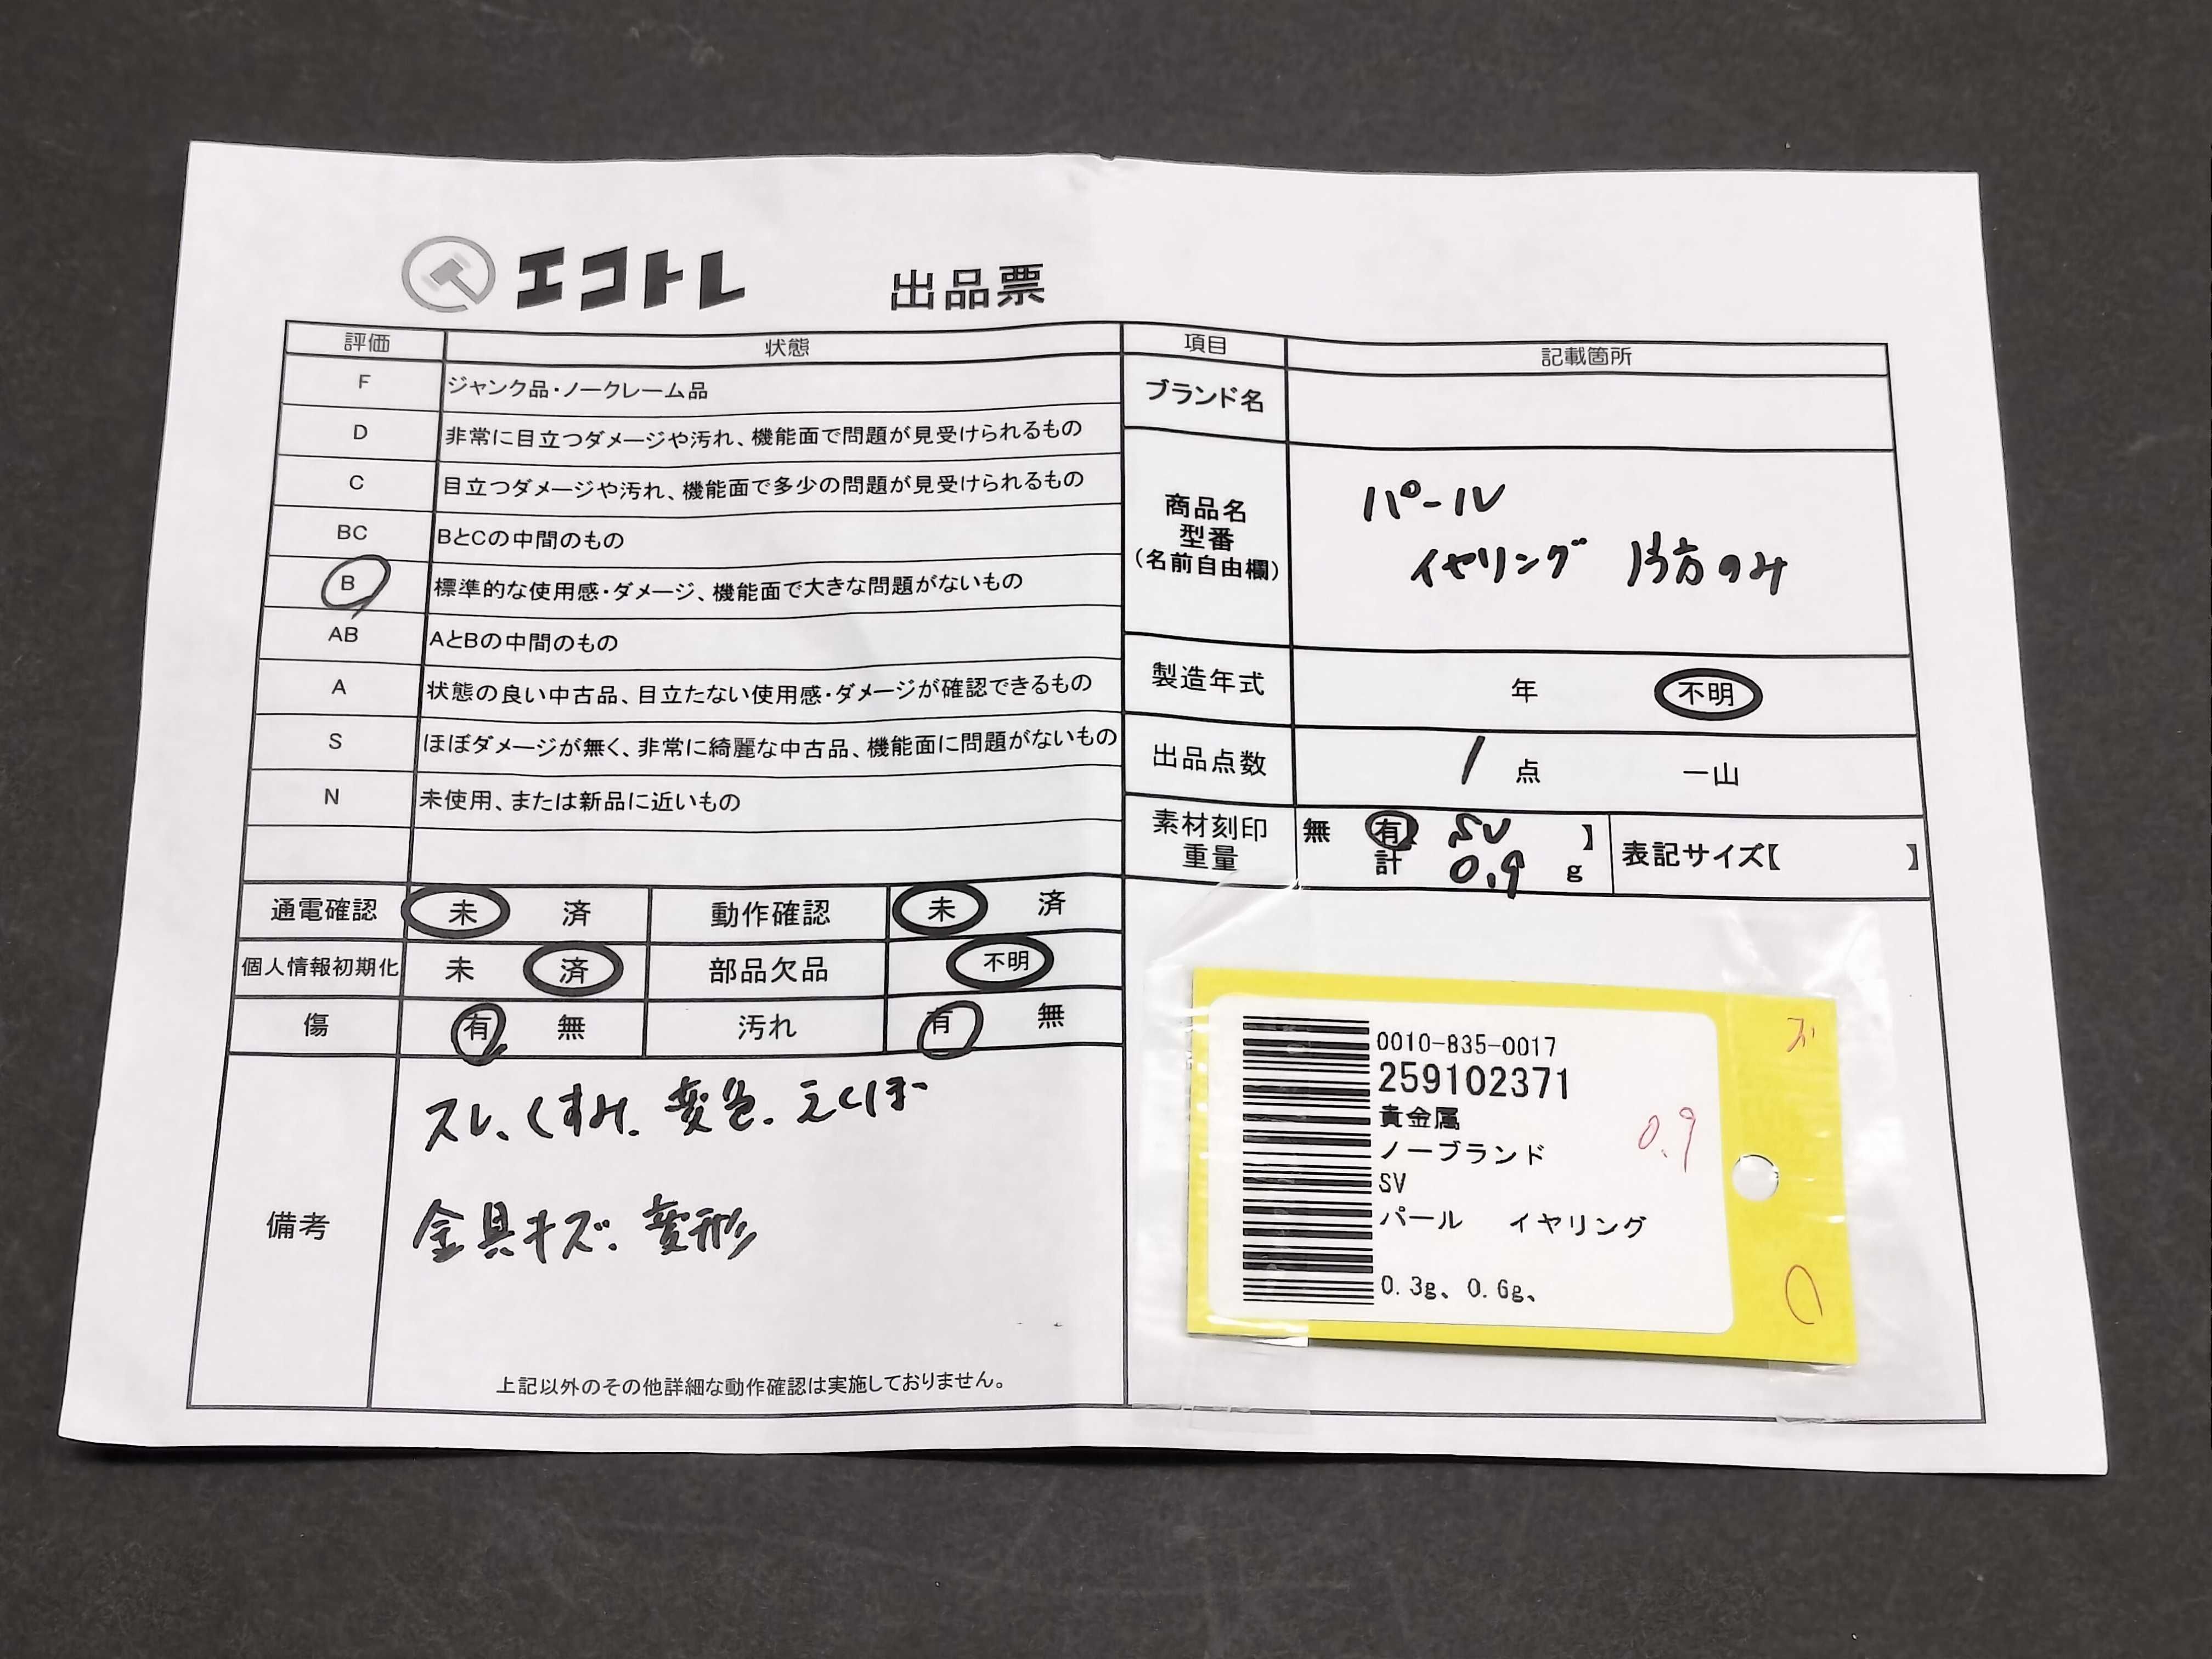 エコトレ 出品票
評価 状態
F ジャンク品・ノークレーム品
D 非常に目立つダメージや汚れ、機能面で問題が見受けられるもの
C 目立つダメージや汚れ、機能面で多少の問題が見受けられるもの
BC BとCの中間のもの
B 標準的な使用感・ダメージ、機能面で大きな問題がないもの
AB AとBの中間のもの
A 状態の良い中古品、目立たない使用感・ダメージが確認できるもの
S ほぼダメージが無く、非常に綺麗な中古品、機能面に問題がないもの
N 未使用、または新品に近いもの
通電確認 未 済 動作確認 未 済
個人情報初期化 未 済 部品欠品 不明
傷 有 無 汚れ 有 無
備考
スレ、くすみ、変色、えくぼ
金具キズ、変形
上記以外のその他詳細な動作確認は実施しておりません。
項目 記載箇所
ブランド名
商品名
型番
(名前自由欄)
パール
イヤリング 片方のみ
製造年式 年 不明
出品点数 1 点 一山
素材刻印 無 有 SV 】
重量 計 0.9 g
表記サイズ【 】
0010-835-0017
259102371
貴金属
ノーブランド
SV
パール イヤリング
0.3g、0.6g、
0.9